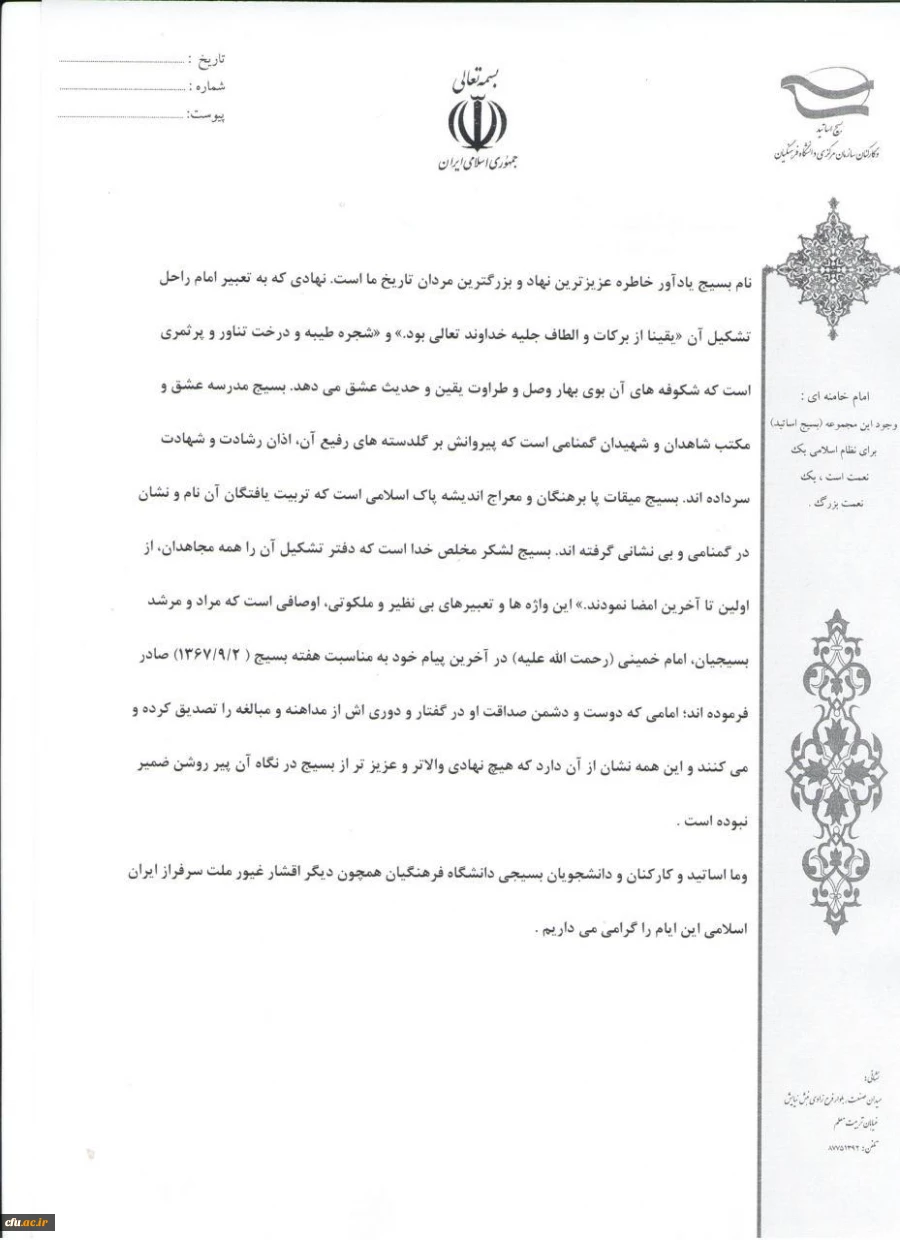 بسمه تعالی
جمهوری اسلامی ایران
بسیج اساتید
و کارکنان سازمان مرکزی دانشگاه فرهنگیان
تاریخ : ........................
شماره : ........................
پیوست: ........................
نام بسیج یادآور خاطره عزیزترین نهاد و بزرگترین مردان تاریخ ما است. نهادی که به تعبیر امام راحل
تشکیل آن «یقینا از برکات و الطاف جلیه خداوند تعالی بود.» و «شجره طیبه و درخت تناور و پرثمری
است که شکوفه های آن بوی بهار وصل و طراوت یقین و حدیث عشق می دهد. بسیج مدرسه عشق و
مکتب شاهدان و شهیدان گمنامی است که پیروانش بر گلدسته های رفیع آن، اذان رشادت و شهادت
سرداده اند. بسیج میقات پا برهنگان و معراج اندیشه پاک اسلامی است که تربیت یافتگان آن نام و نشان
در گمنامی و بی نشانی گرفته اند. بسیج لشکر مخلص خدا است که دفتر تشکیل آن را همه مجاهدان، از
اولین تا آخرین امضا نمودند.» این واژه ها و تعبیرهای بی نظیر و ملکوتی، اوصافی است که مراد و مرشد
بسیجیان، امام خمینی (رحمت الله علیه) در آخرین پیام خود به مناسبت هفته بسیج ( ۱۳۶۷/۹/۲) صادر
فرموده اند؛ امامی که دوست و دشمن صداقت او در گفتار و دوری اش از مداهنه و مبالغه را تصدیق کرده و
می کنند و این همه نشان از آن دارد که هیچ نهادی والاتر و عزیز تر از بسیج در نگاه آن پیر روشن ضمیر
نبوده است .
وما اساتید و کارکنان و دانشجویان بسیجی دانشگاه فرهنگیان همچون دیگر اقشار غیور ملت سرفراز ایران
اسلامی این ایام را گرامی می داریم .
امام خامنه ای :
وجود این مجموعه (بسیج اساتید)
برای نظام اسلامی یک
نعمت است ، یک
نعمت بزرگ .
نشانی:
میدان صنعت، بلوار فرح زادی نبش نیایش
خیابان تربیت معلم
تلفن: ۸۷۷۵۱۳۹۲
cfu.ac.ir